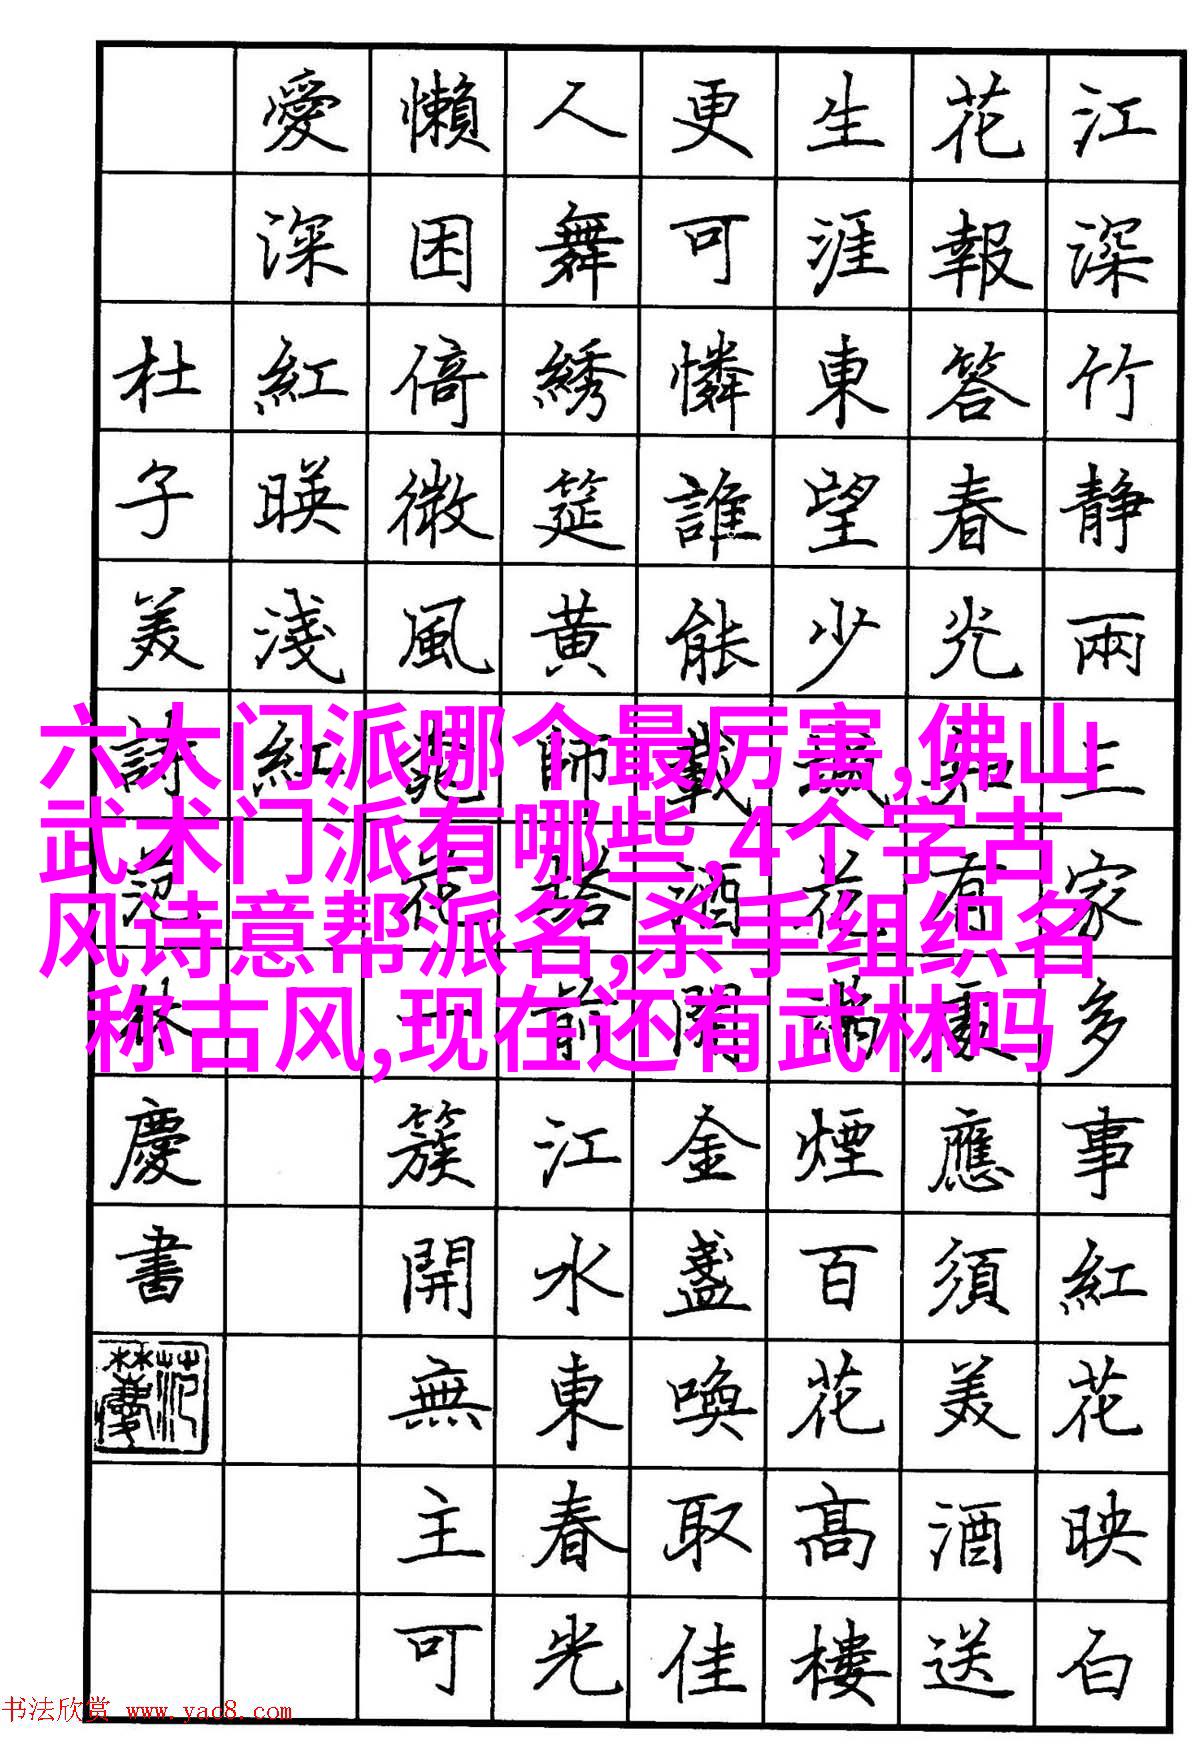 江深竹静兩三家多事紅花映白
花報答春光知有處應須美酒送
生涯東望少城花滿煙百花高樓
更可憐誰能載酒開金盞喚取佳
人舞綉筵黄師塔前江水東春光
懶困倚微風桃花一簇開無主可
愛深紅暎淺紅
杜子美詩范林慶書
六大门派哪个最厉害,佛山
武术门派有哪些,4个字古
风诗意帮派名,杀手组织名
称古风,现在还有武林吗
书法欣赏 www.yac8.com